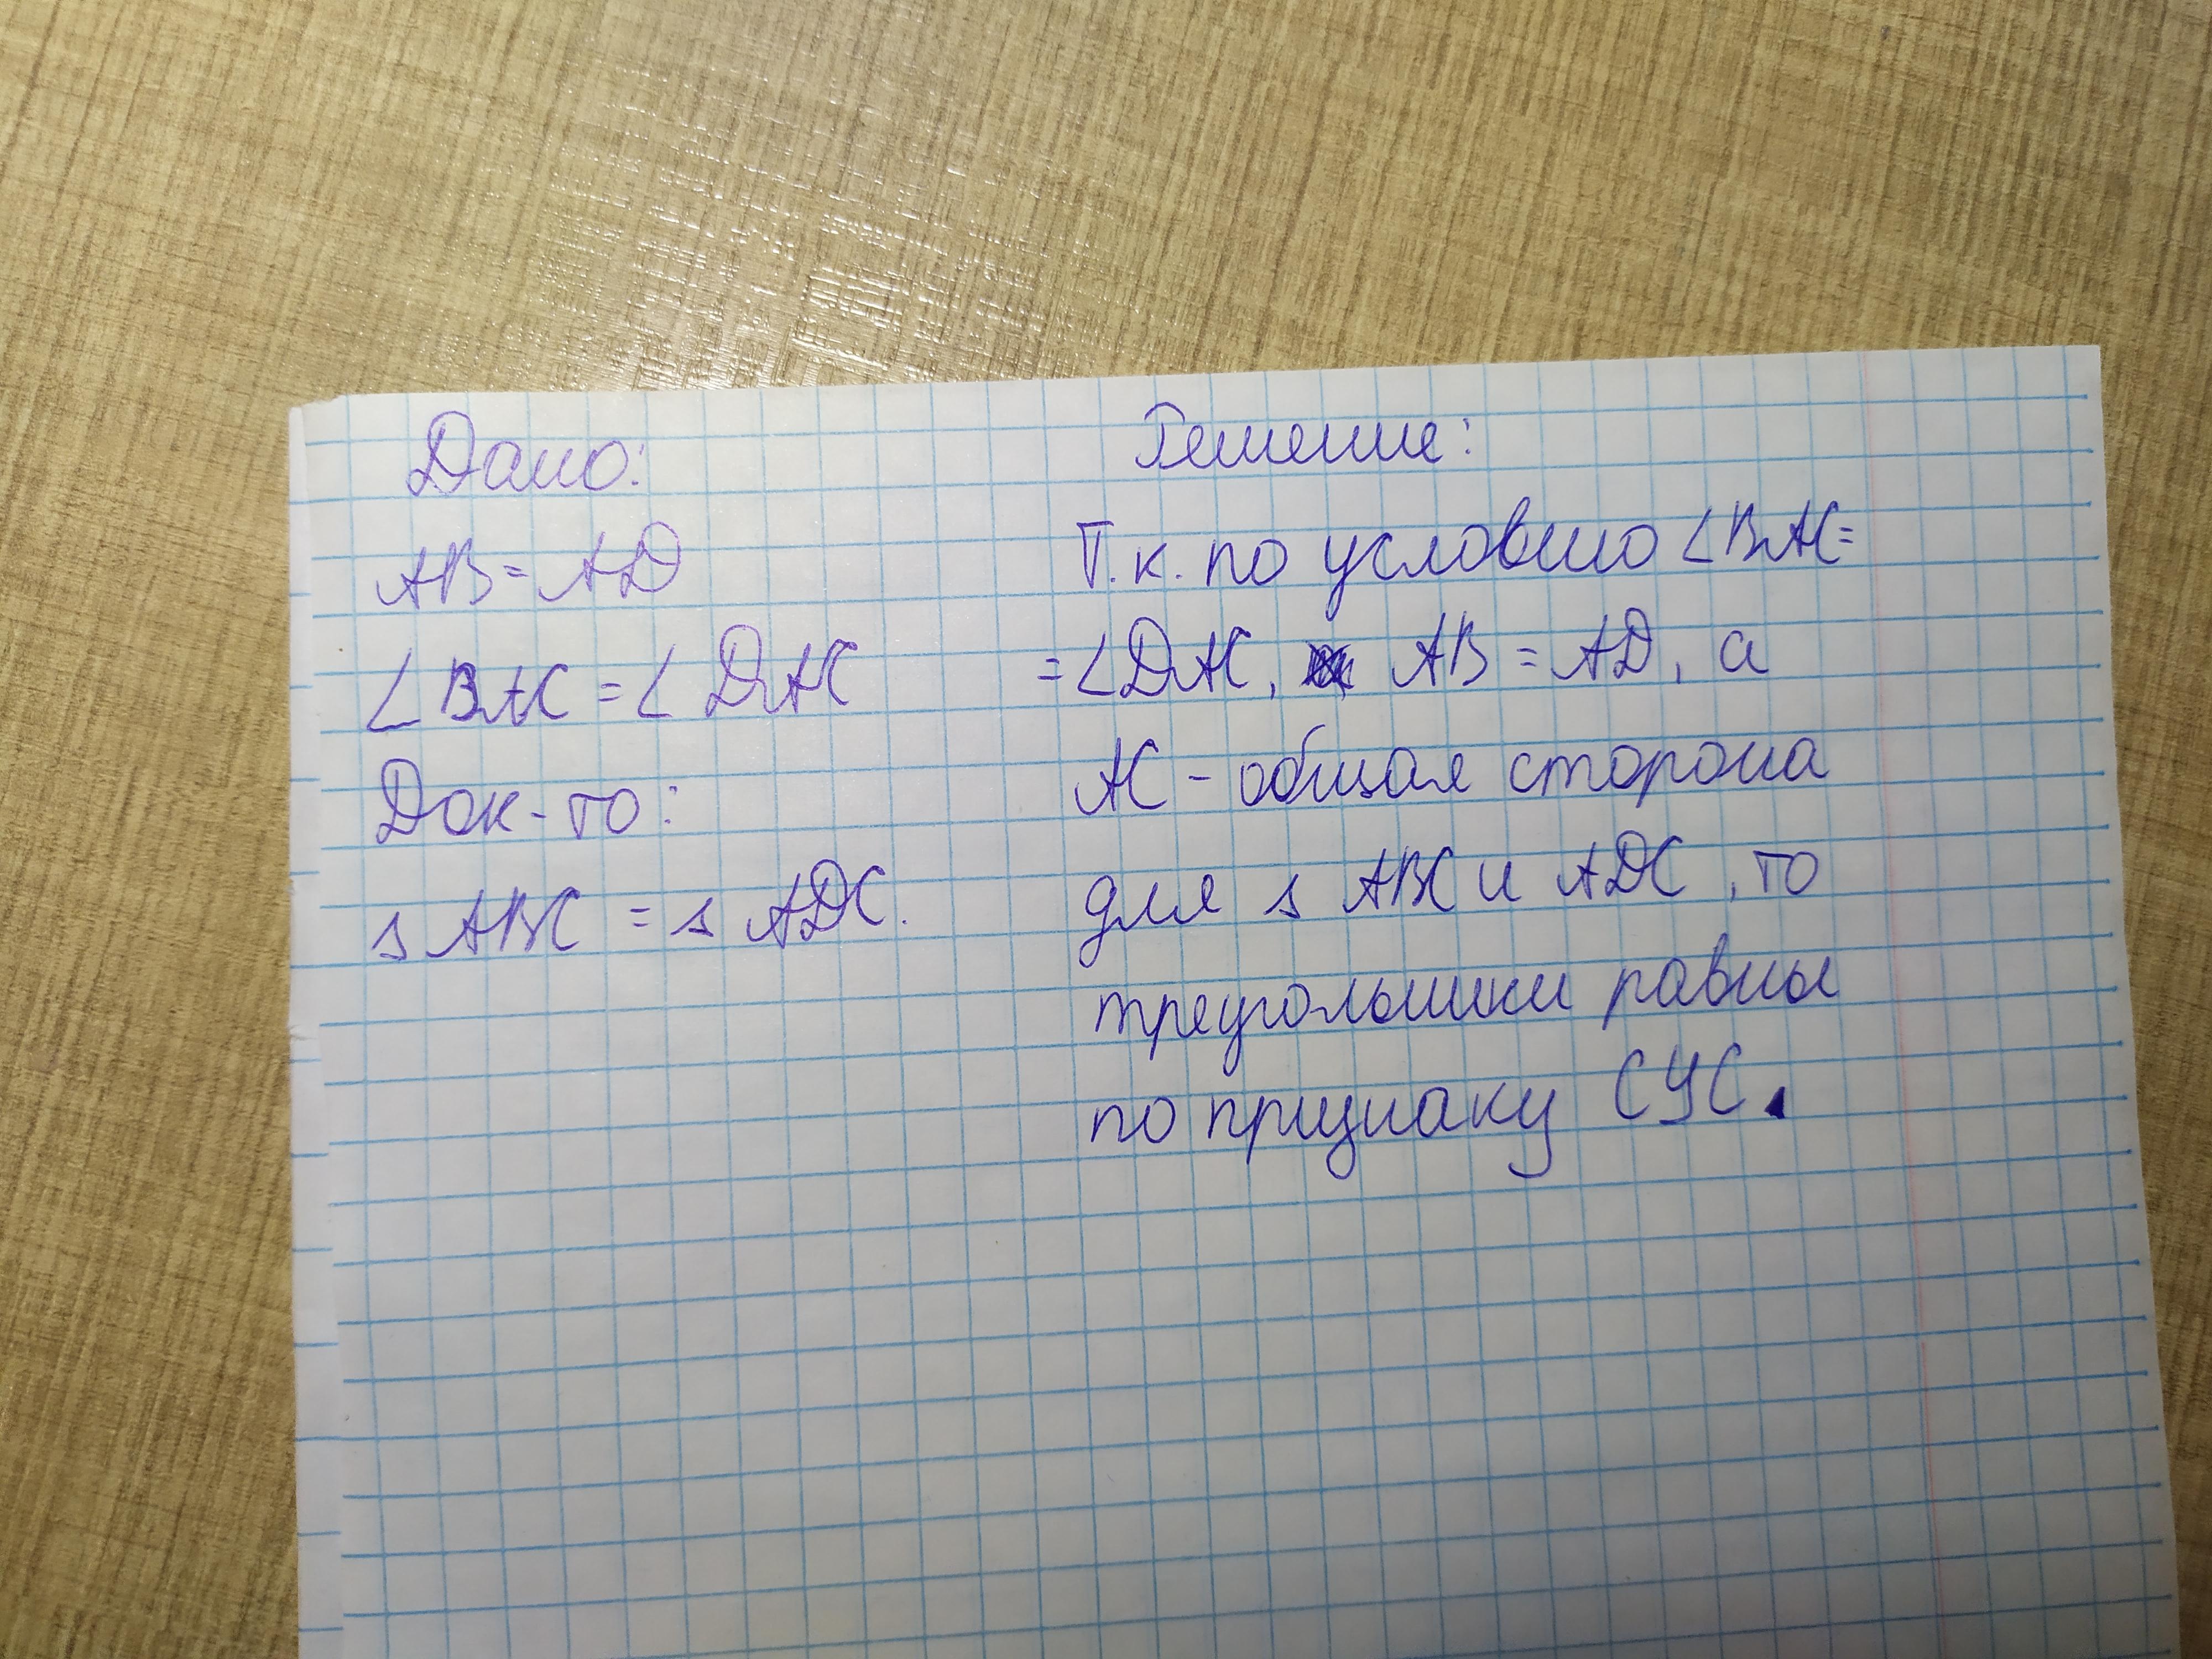 Дано:
AB = AD
∠BAC = ∠DAC
Док-то:
s ABC = s ADC.
Решение:
Т.к. по условию ∠BAC =
= ∠DAC, AB = AD, а
AC - общая сторона
для s ABC и ADC, то
треугольники равны
по признаку СУС.